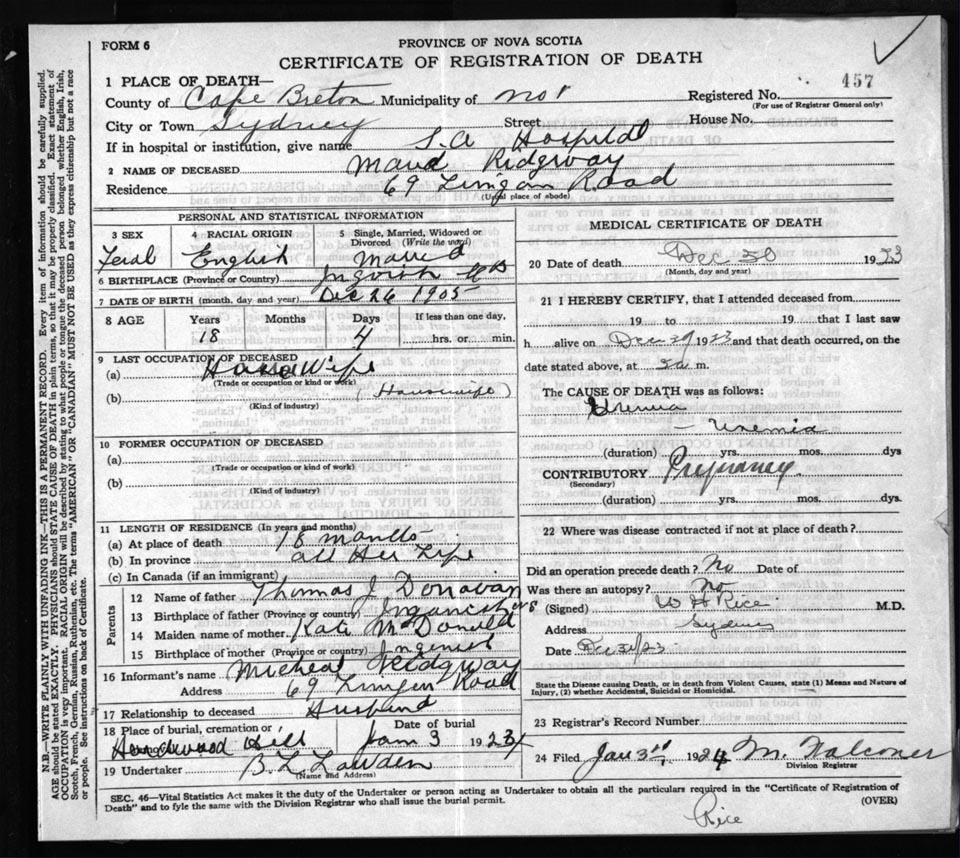 FORM 6
PROVINCE OF NOVA SCOTIA
CERTIFICATE OF REGISTRATION OF DEATH
1 PLACE OF DEATH—
Registered No. 457
(For use of Registrar General only)
County of Cape Breton Municipality of No 1
City or Town Sydney Street House No.
If in hospital or institution, give name S.A Hospital
2 NAME OF DECEASED Maud Ridgway
Residence 69 Lingan Road
(Usual place of abode)
PERSONAL AND STATISTICAL INFORMATION
3 SEX 4 RACIAL ORIGIN 5 Single, Married, Widowed or Divorced (Write the word)
English Married
6 BIRTHPLACE (Province or Country)
7 DATE OF BIRTH (month, day and year) Dec 26 1905
8 AGE Years Months Days If less than one day,
18 4 hrs. or min.
9 LAST OCCUPATION OF DECEASED
(a) House Wife
(Trade or occupation or kind or work)
(b) (Housewife)
(Kind of industry)
10 FORMER OCCUPATION OF DECEASED
(a)
(Trade or occupation or kind of work)
(b)
(Kind of industry)
11 LENGTH OF RESIDENCE (In years and months)
(a) At place of death 18 months
(b) In province all Her Life
(c) In Canada (if an immigrant)
Parents
12 Name of father Thomas J Donovan
13 Birthplace of father (Province or country)
14 Maiden name of mother Kate McDonald
15 Birthplace of mother (Province or country)
16 Informant's name Micheal Ridgway
Address 69 Lingan Road
17 Relationship to deceased Husband
18 Place of burial, cremation or Date of burial
Hill Jan 3 1924
19 Undertaker B.L.
(Name and Address)
MEDICAL CERTIFICATE OF DEATH
20 Date of death Dec 30 1923
(Month, day and year)
21 I HEREBY CERTIFY, that I attended deceased from
19 to 19 that I last saw
h alive on Dec 29 1923 and that death occurred, on the
date stated above, at m.
The CAUSE OF DEATH was as follows:
Uremia
- Uremia
(duration) yrs. mos. dys
CONTRIBUTORY Pregnancy
(Secondary)
(duration) yrs. mos. dys.
22 Where was disease contracted if not at place of death?
Did an operation precede death? No Date of
Was there an autopsy? No
(Signed) W H Rice M.D.
Address Sydney
Date Dec 31/23
State the Disease causing Death, or in death from Violent Causes, state (1) Means and Nature of Injury, (2) whether Accidental, Suicidal or Homicidal.
23 Registrar's Record Number
24 Filed Jan 3rd, 1924 M. Falconer
Division Registrar
SEC. 46—Vital Statistics Act makes it the duty of the Undertaker or person acting as Undertaker to obtain all the particulars required in the "Certificate of Registration of
Death" and to fyle the same with the Division Registrar who shall issue the burial permit.
(OVER)
Rice
N.B.—WRITE PLAINLY WITH UNFADING INK—THIS IS A PERMANENT RECORD. Every item of information should be carefully supplied.
AGE should be stated EXACTLY. PHYSICIANS should STATE CAUSE OF DEATH in plain terms, so that it may be properly classified. Exact statement of
OCCUPATION is very important. RACIAL ORIGIN will be described by stating to what people or tongue the deceased person belonged whether English, Irish,
Scotch, French, German, Russian, Ruthenian, etc. The terms "AMERICAN" OR "CANADIAN" MUST NOT BE USED as they express citizenship but not a race
or people. See instructions on back of Certificate.